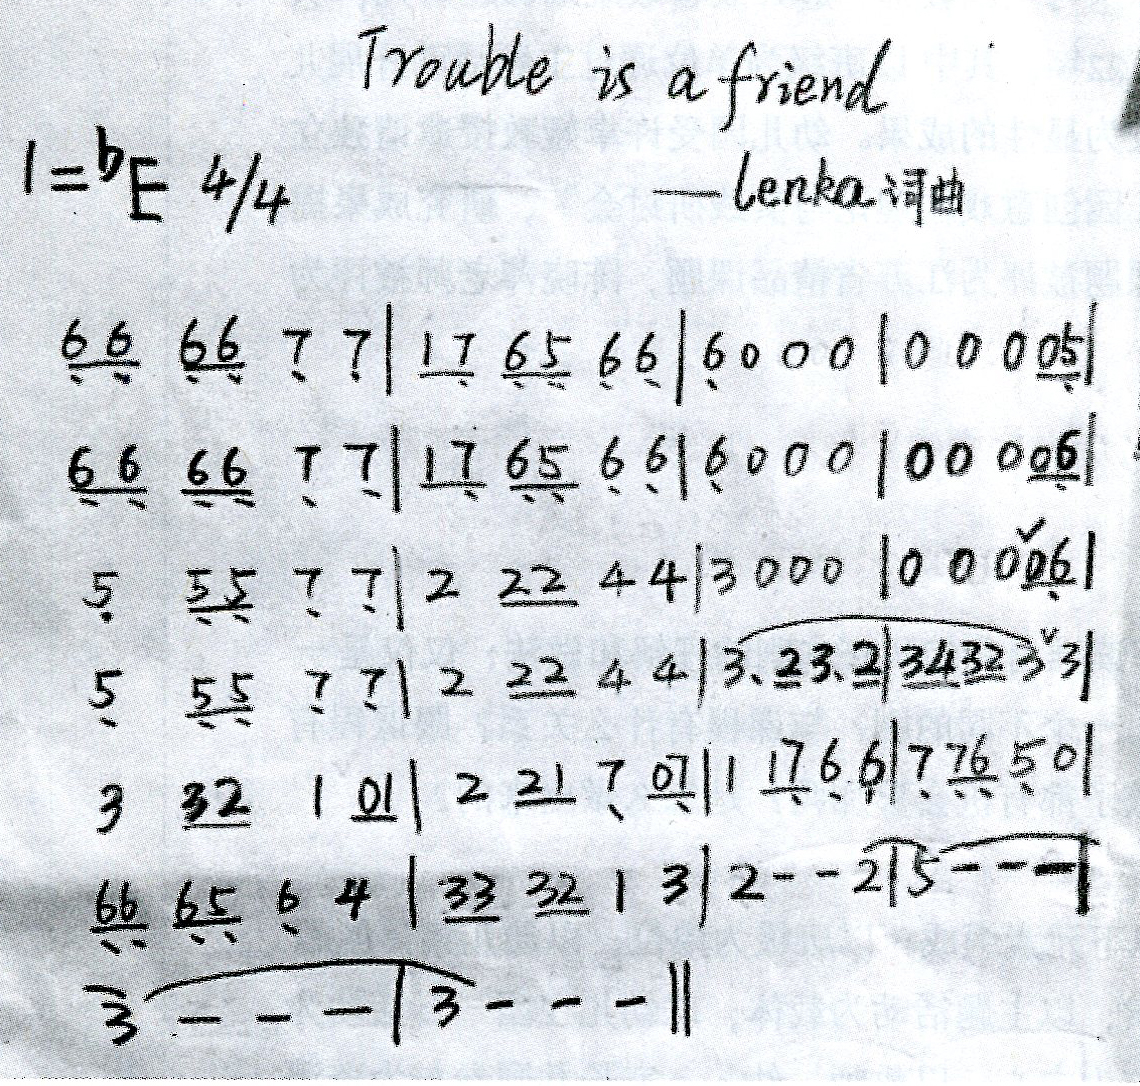 Trouble is a friend
1=ᵇE 4/4 ——lenka词曲
6̣6̣ 6̣6̣ 7̣ 7̣ | 17̣ 6̣5̣ 6̣6̣ | 6̣ 0 0 0 | 0 0 0 05̣ |
6̣6̣ 6̣6̣ 7̣ 7̣ | 17̣ 6̣5̣ 6̣6̣ | 6̣ 0 0 0 | 0 0 0 06̣ |
5̣ 5̣5̣ 7̣ 7̣ | 2 22 4 4 | 3 0 0 0 | 0 0 0 06̣ |
5̣ 5̣5̣ 7̣ 7̣ | 2 22 4 4 | 3. 2 3. 2 | 34 32 3 ˅ 3 |
3 32 1 01 | 2 21 7̣ 07̣ | 1 17̣ 6̣ 6̣ | 7̣ 7̣6̣ 5̣ 0 |
6̣6̣ 6̣5̣ 6̣ 4 | 33 32 1 3 | 2 - - 2 | 5 - - - |
3 - - - | 3 - - - ||